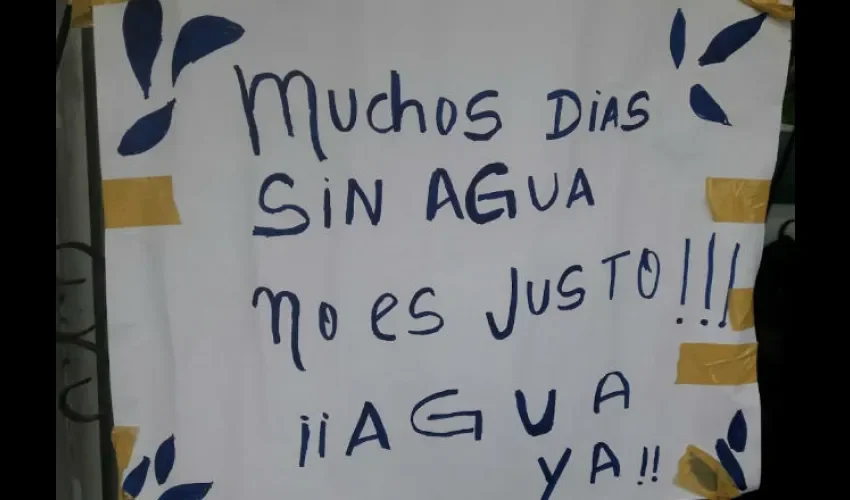 Muchos DiAS
SiN AGUA
no es JUSTO!!!
¡¡AGUA
YA!!